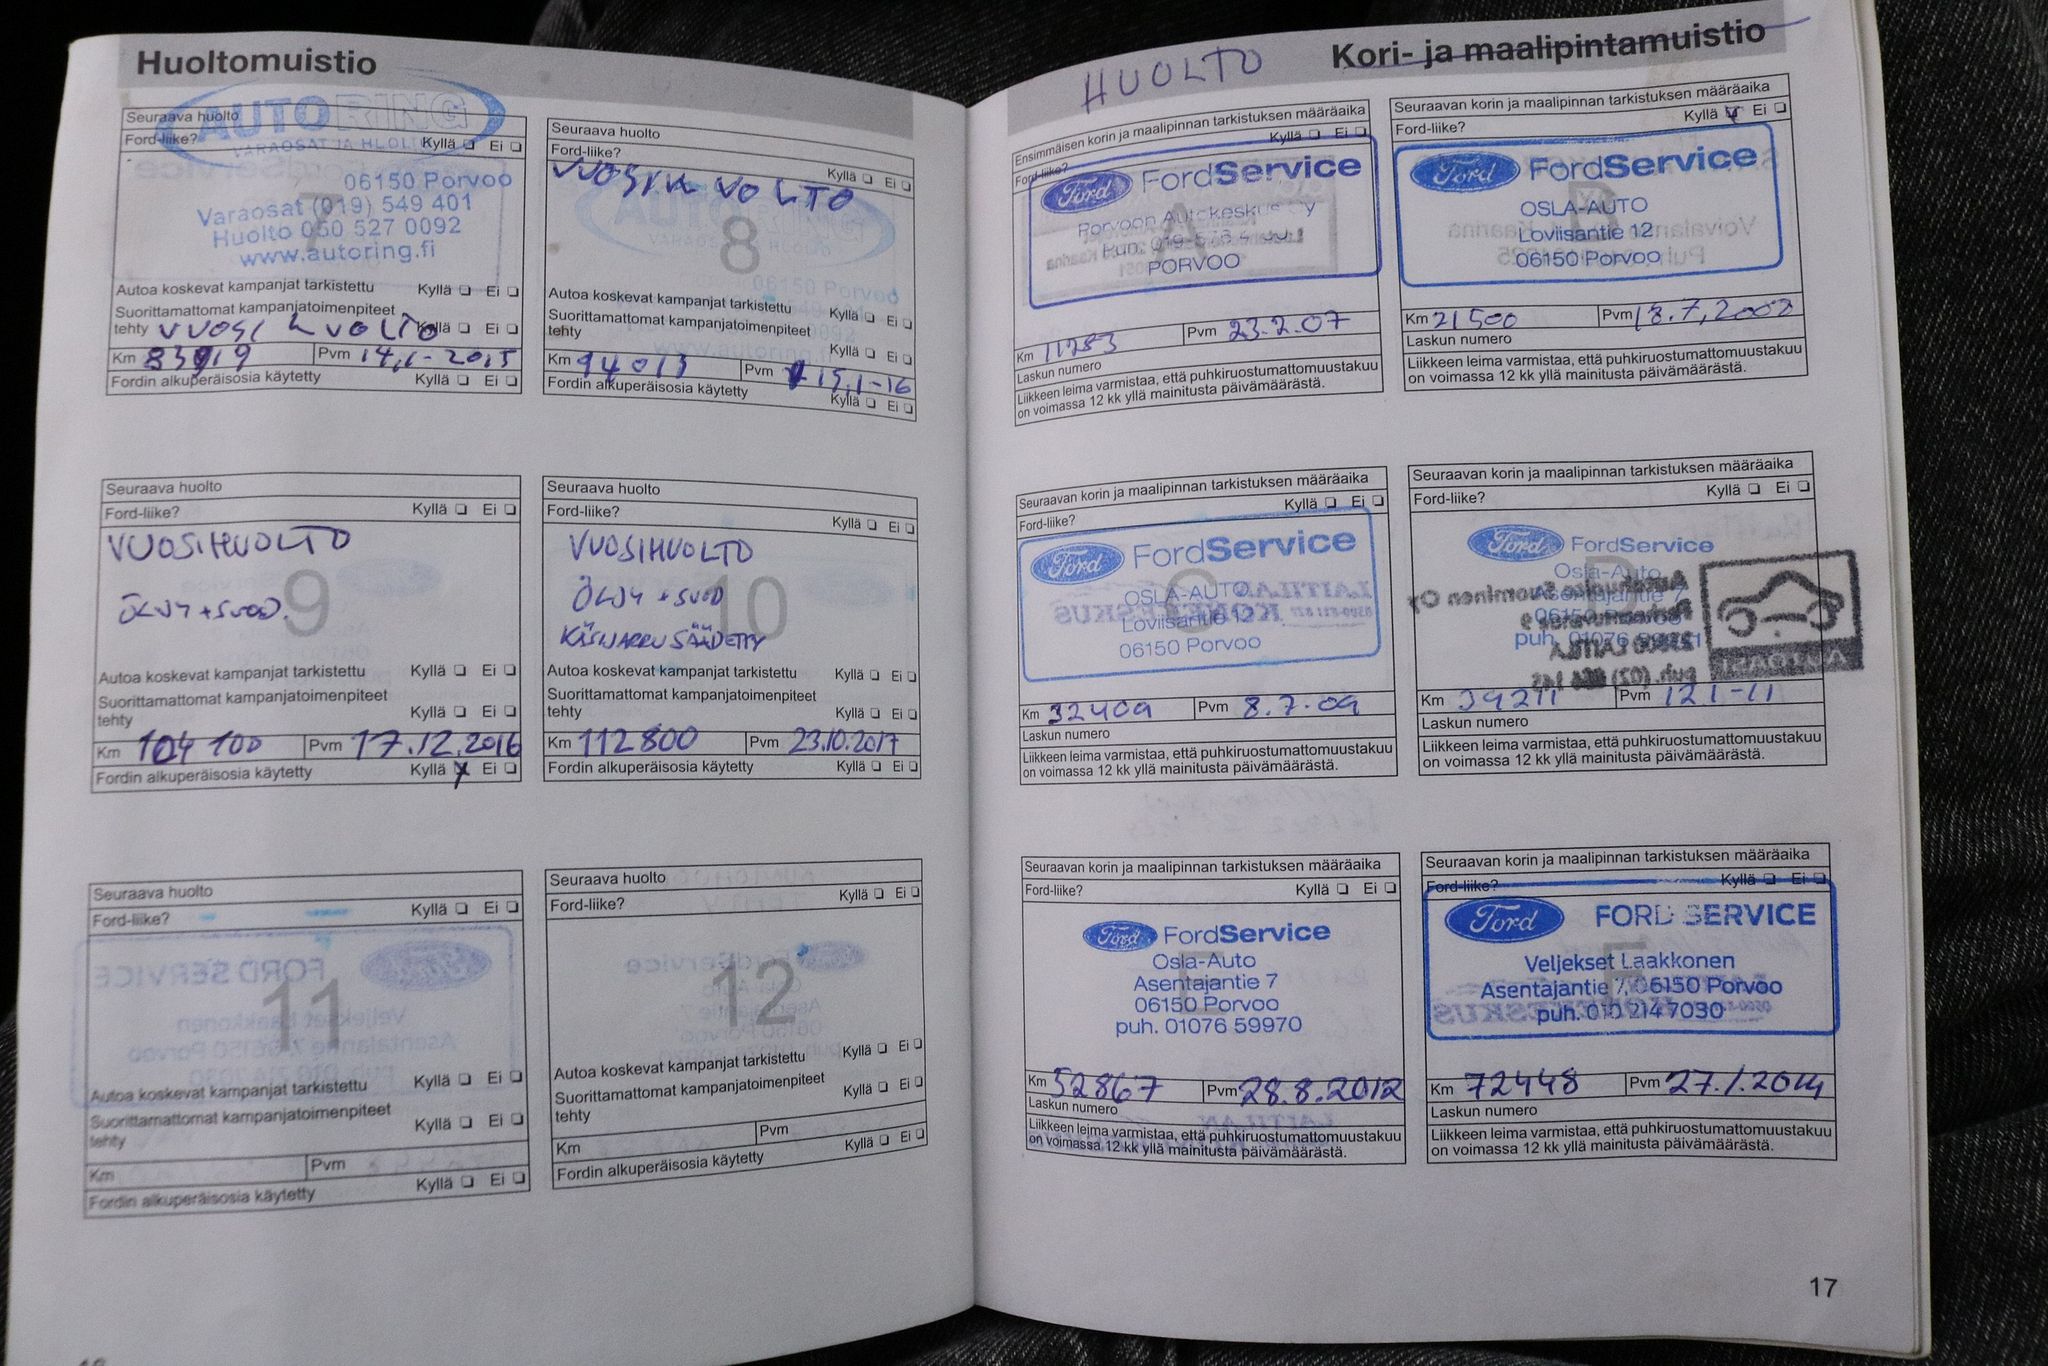 Huoltomuistio
Seuraava huolto
Ford-liike? Kyllä Ei
AUTORING
VARAOSAT JA HUOLTO
06150 Porvoo
Varaosat (019) 549 401
Huolto 050 527 0092
www.autoring.fi
7
Autoa koskevat kampanjat tarkistettu Kyllä Ei
Suorittamattomat kampanjatoimenpiteet
tehty Kyllä Ei
VUOSI HUOLTO
Km Pvm 14,1-2015
Fordin alkuperäisosia käytetty Kyllä Ei
Seuraava huolto
Ford-liike? Kyllä Ei
VUOSIHUOLTO
8
06150 Porvoo
Autoa koskevat kampanjat tarkistettu Kyllä Ei
Suorittamattomat kampanjatoimenpiteet
tehty Kyllä Ei
Km 94013 Pvm 15,1-16
Fordin alkuperäisosia käytetty Kyllä Ei
Seuraava huolto
Ford-liike? Kyllä Ei
VUOSIHUOLTO
ÖLJY + SUOD.
9
Autoa koskevat kampanjat tarkistettu Kyllä Ei
Suorittamattomat kampanjatoimenpiteet
tehty Kyllä Ei
Km 104 100 Pvm 17.12.2016
Fordin alkuperäisosia käytetty Kyllä Ei
Seuraava huolto
Ford-liike? Kyllä Ei
VUOSIHUOLTO
ÖLJY + SUOD
10
KÄSIJARRU SÄÄDETTY
Autoa koskevat kampanjat tarkistettu Kyllä Ei
Suorittamattomat kampanjatoimenpiteet
tehty Kyllä Ei
Km 112800 Pvm 23.10.2017
Fordin alkuperäisosia käytetty Kyllä Ei
Seuraava huolto
Ford-liike? Kyllä Ei
11
Autoa koskevat kampanjat tarkistettu Kyllä Ei
Suorittamattomat kampanjatoimenpiteet
tehty Kyllä Ei
Km Pvm
Fordin alkuperäisosia käytetty Kyllä Ei
Seuraava huolto
Ford-liike? Kyllä Ei
12
Autoa koskevat kampanjat tarkistettu Kyllä Ei
Suorittamattomat kampanjatoimenpiteet
tehty Kyllä Ei
Km Pvm
Fordin alkuperäisosia käytetty Kyllä Ei
HUOLTO Kori- ja maalipintamuistio
Ensimmäisen korin ja maalipinnan tarkistuksen määräaika
Ford-liike? Kyllä Ei
Ford FordService
A
Porvoon Autokeskus Oy
PORVOO
Km 11283 Pvm 23.2.07
Laskun numero
Liikkeen leima varmistaa, että puhkiruostumattomuustakuu
on voimassa 12 kk yllä mainitusta päivämäärästä.
Seuraavan korin ja maalipinnan tarkistuksen määräaika
Ford-liike? Kyllä Ei
Ford FordService
B
OSLA-AUTO
Loviisantie 12
06150 Porvoo
Km 21500 Pvm 18.7,2008
Laskun numero
Liikkeen leima varmistaa, että puhkiruostumattomuustakuu
on voimassa 12 kk yllä mainitusta päivämäärästä.
Seuraavan korin ja maalipinnan tarkistuksen määräaika
Ford-liike? Kyllä Ei
Ford FordService
C
OSLA-AUTO
Loviisantie 12
06150 Porvoo
Km 32409 Pvm 8.7.09
Laskun numero
Liikkeen leima varmistaa, että puhkiruostumattomuustakuu
on voimassa 12 kk yllä mainitusta päivämäärästä.
Seuraavan korin ja maalipinnan tarkistuksen määräaika
Ford-liike? Kyllä Ei
Ford FordService
D
Osla-Auto
Asentajantie 7
06150 Porvoo
puh. 01076
Km 39211 Pvm 12 1-11
Laskun numero
Liikkeen leima varmistaa, että puhkiruostumattomuustakuu
on voimassa 12 kk yllä mainitusta päivämäärästä.
Seuraavan korin ja maalipinnan tarkistuksen määräaika
Ford-liike? Kyllä Ei
Ford FordService
Osla-Auto
Asentajantie 7
06150 Porvoo
puh. 01076 59970
Km 52867 Pvm 28.8.2012
Laskun numero
Liikkeen leima varmistaa, että puhkiruostumattomuustakuu
on voimassa 12 kk yllä mainitusta päivämäärästä.
Seuraavan korin ja maalipinnan tarkistuksen määräaika
Ford-liike? Kyllä Ei
Ford FORD SERVICE
F
Veljekset Laakkonen
Asentajantie 7, 06150 Porvoo
puh. 010 214 7030
Km 72448 Pvm 27.1.2014
Laskun numero
Liikkeen leima varmistaa, että puhkiruostumattomuustakuu
on voimassa 12 kk yllä mainitusta päivämäärästä.
17